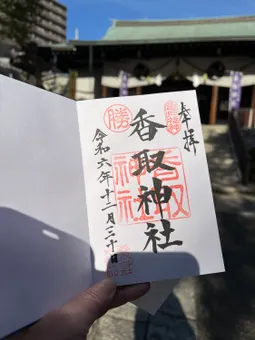 奉拝
香取神社
香取神社
勝
令和六年十二月三十日